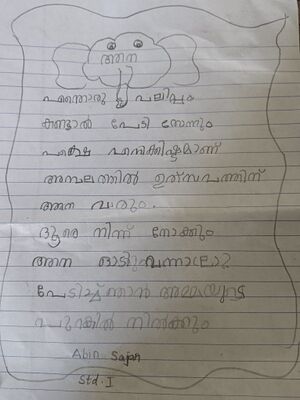 ആന
എന്തൊരു വലിപ്പം
കണ്ടാൽ പേടി തോന്നും
പക്ഷെ എനിക്കിഷ്ടമാണ്
അമ്പലത്തിൽ ഉത്സവത്തിന്
ആന വരും.
ദൂരെ നിന്ന് നോക്കും
ആന ഓടിവന്നാലോ?
പേടിച്ച് ഞാൻ അമ്മയുടെ
പുറകിൽ നിൽക്കും
Abin Sajan
Std. I